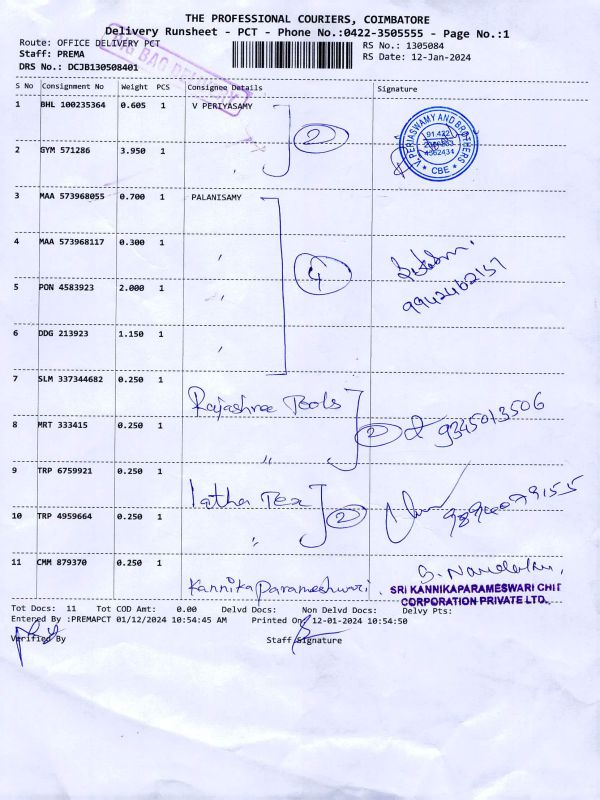 THE PROFESSIONAL COURIERS, COIMBATORE
Delivery Runsheet - PCT - Phone No.:0422-3505555 - Page No.:1
Route: OFFICE DELIVERY PCT
RS No.: 1305084
Staff: PREMA
RS Date: 12-Jan-2024
DRS No.: DCJB130508401
BIG BAG
S No Consignment No Weight PCS Consignee Details Signature
1 BHL 100235364 0.605 1 V PERIYASAMY
2
V. PERIASWAMY AND BROTHERS
* CBE *
2 GYM 571286 3.950 1 "
3 MAA 573968055 0.700 1 PALANISAMY
4 MAA 573968117 0.300 1 "
4
9942462157
5 PON 4583923 2.000 1 "
6 DDG 213923 1.150 1 "
7 SLM 337344682 0.250 1 Rajashree Tools
8 MRT 333415 0.250 1 " 2 9345013506
9 TRP 6759921 0.250 1 latha Tex
10 TRP 4959664 0.250 1 " 2
11 CMM 879370 0.250 1 Kannika Parameshwari.
SRI KANNIKAPARAMESWARI CHIT
CORPORATION PRIVATE LTD.,
Tot Docs: 11 Tot COD Amt: 0.00 Delvd Docs: Non Delvd Docs: Delvy Pts:
Entered By :PREMAPCT 01/12/2024 10:54:45 AM Printed On 12-01-2024 10:54:50
Verified By Staff Signature